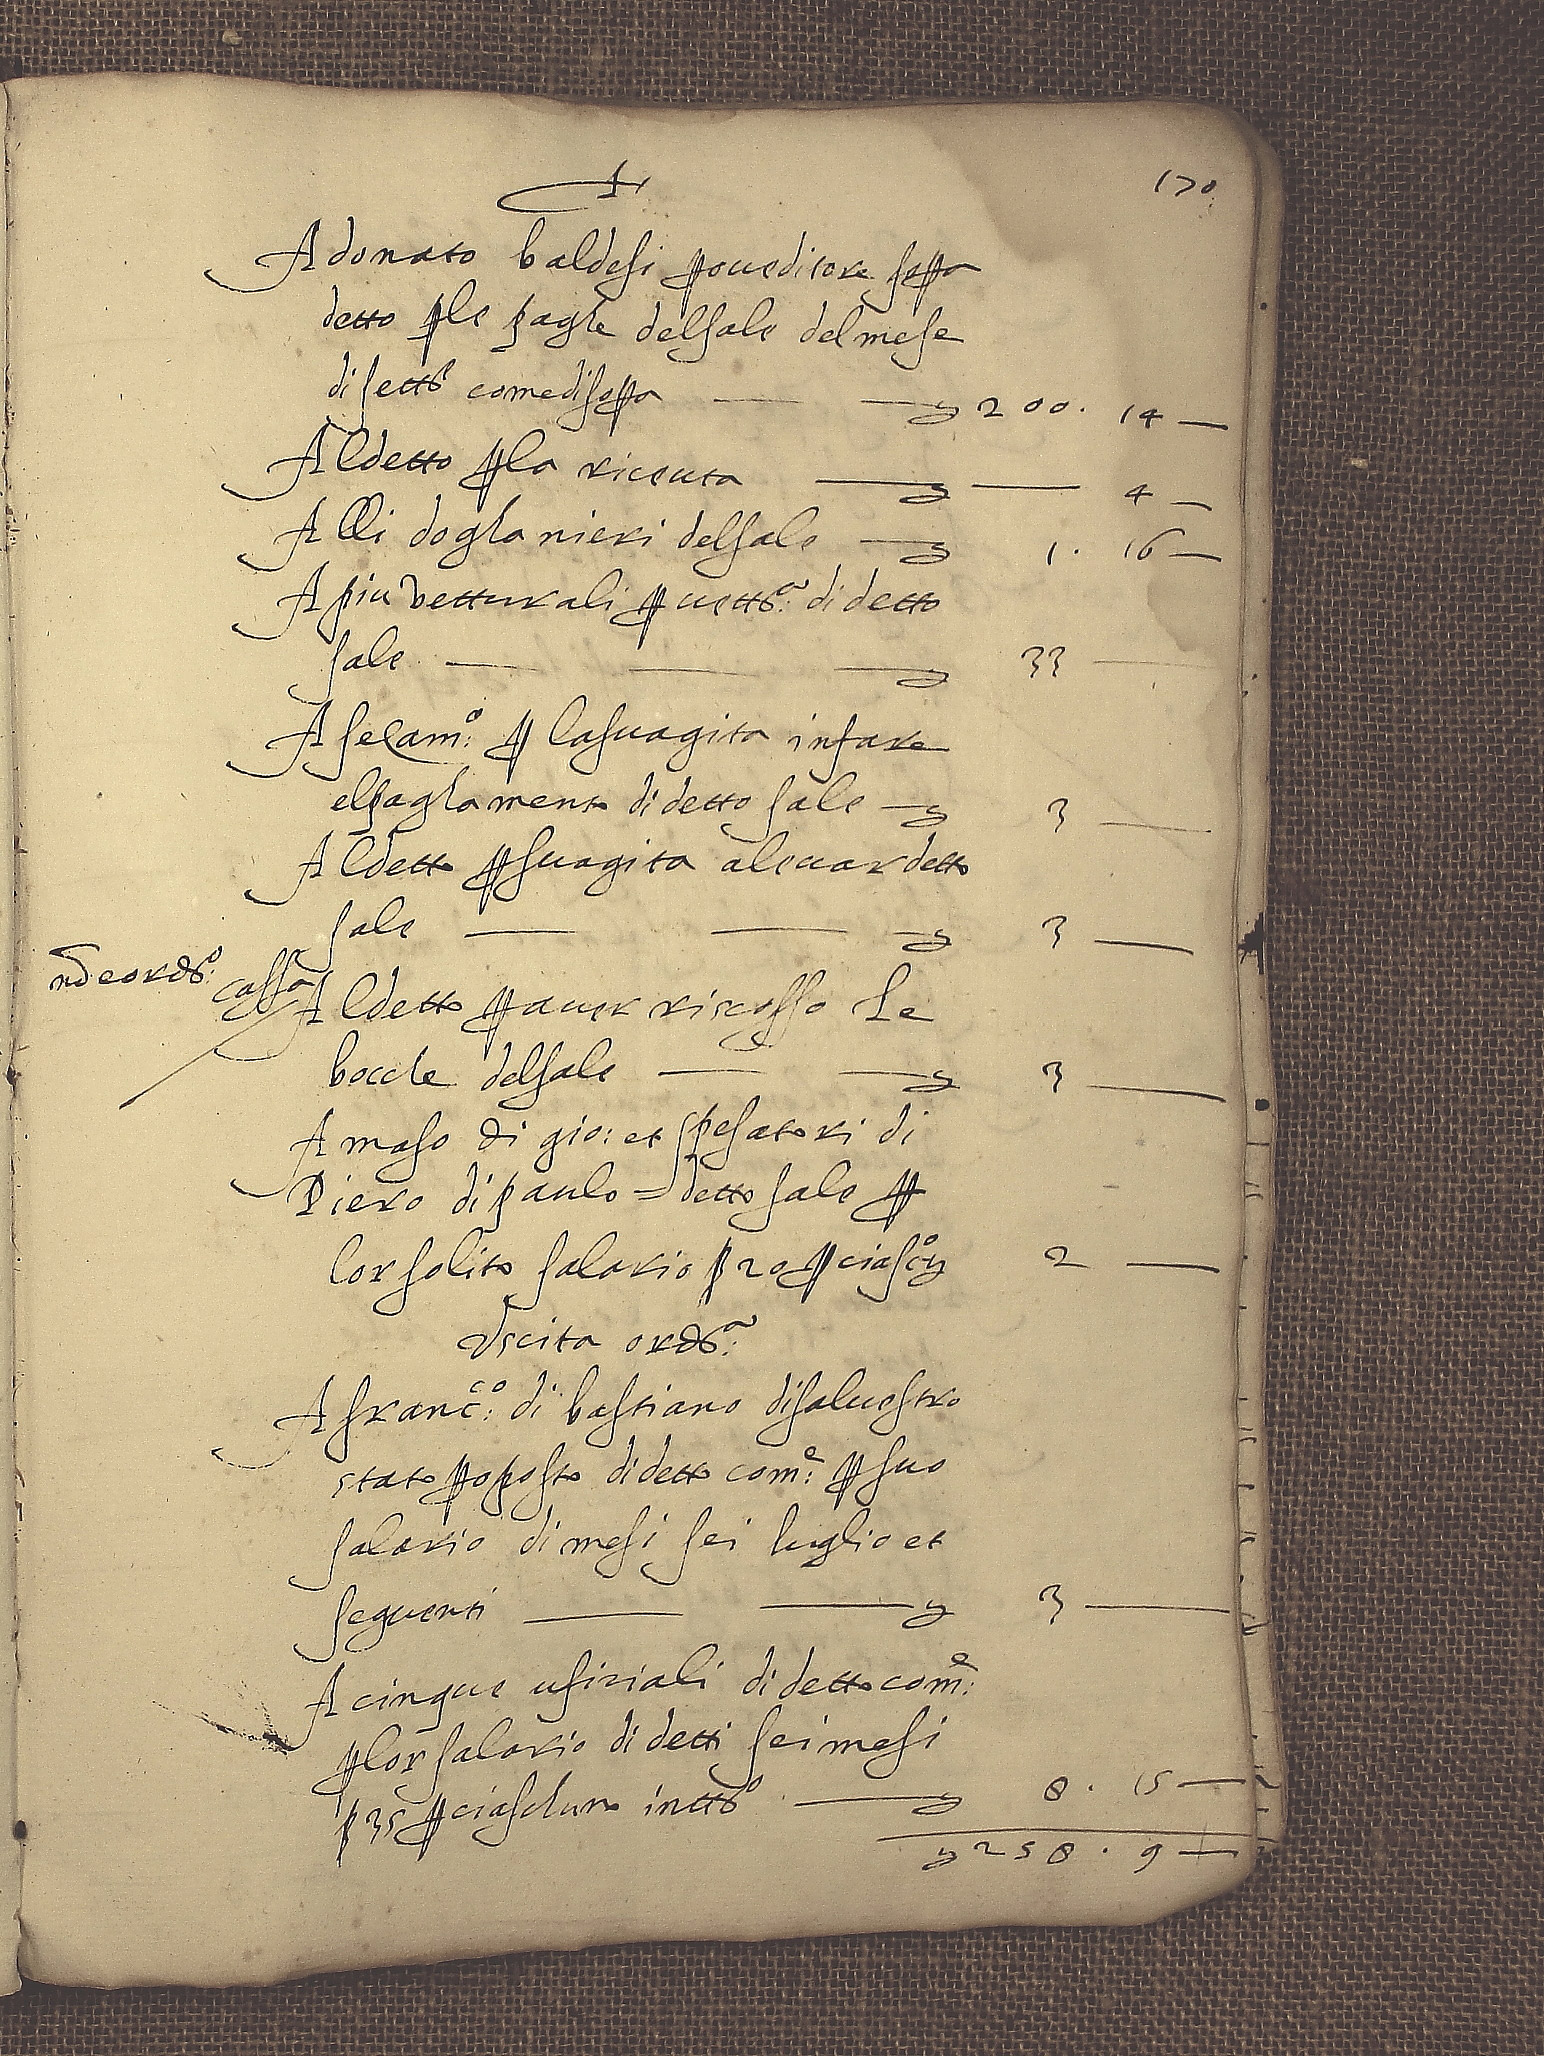 170
A donato baldesi proueditore sopra
detto ple paghe delsale delmese
di settre comedisopra — — y 200. 14 —
Aldetto pla riceuta — y — 4 —
Alli doghanieri delsale — y 1. 16 —
A piu vetturali p uettra: di detto
sale — — — y 33 —
A ser lamo: p lasuagita infare
elpaghamento di detto sale — y 3 —
Aldetto psuagita aleuar detto
sale — — — y 3 —
cassa
Aldetto pauer riscosso le
bocche delsale — — y 3 —
A maso di gio: et pesatori di
Piero di paulo = detto sale p
lor solito salario p 20 p ciasco y 2 —
Vscita ordra:
A francco: di bastiano disaluestro
stato proposto didetto come: p suo
salario di mesi sei luglio et
seguenti — — y 3 —
A cinque ufiziali di detto come:
plor salario di detti sei mesi
p 35 p ciaschuno intto — y 8. 15 —
y 258. 9 —